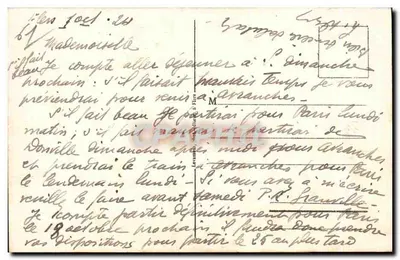 1 oct. 24
Mademoiselle
s'il fait beau Je compte aller déjeuner à S. dimanche
prochain. S'il faisait mauvais temps je vous
préviendrai pour venir à Avranches -
S'il fait beau je partirai pour Paris lundi
matin; s'il fait mauvais je partirai de
Donville dimanche après midi pour Avranches
et prendrai le train à Avranches pour Paris
le lendemain lundi - Si vous avez à m'écrire
veuille le faire avant samedi P. R. Granville
Je compte partir définitivement pour Paris
le 18 octobre prochain. Il faudra donc prendre
vos dispositions pour partir le 25 au plus tard